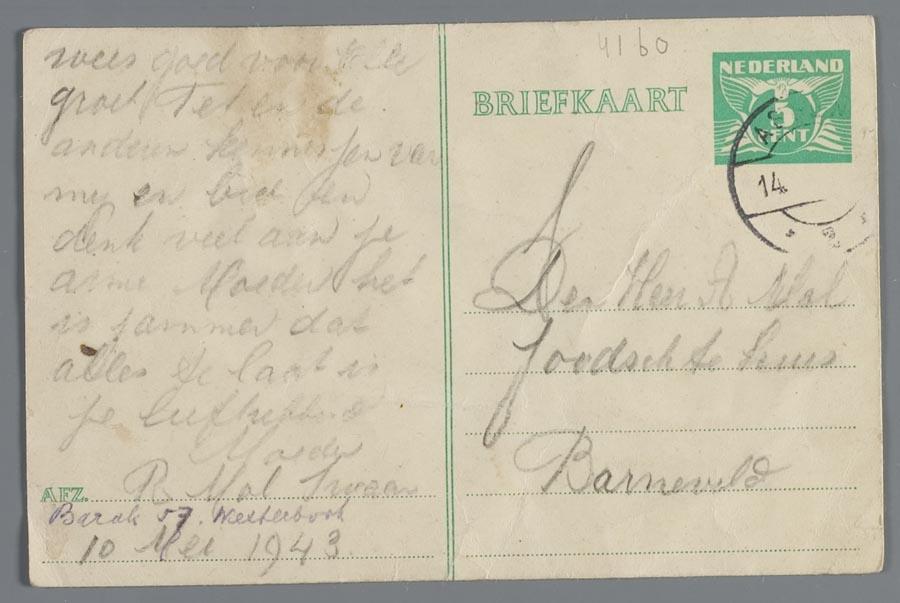 wees goed voor
groet Tet en de
anderen kennissen van
my en bid en
denk veel aan je
arme Moeder het
is jammer dat
alles te laat is
je liefhebbend
Moeder
AFZ. R Mol Swaan
Barak 57. Westerbork
10 Mei 1943
4160
BRIEFKAART
NEDERLAND
5
CENT
14
Den Heer A Mol
Joodsche
Barneveld